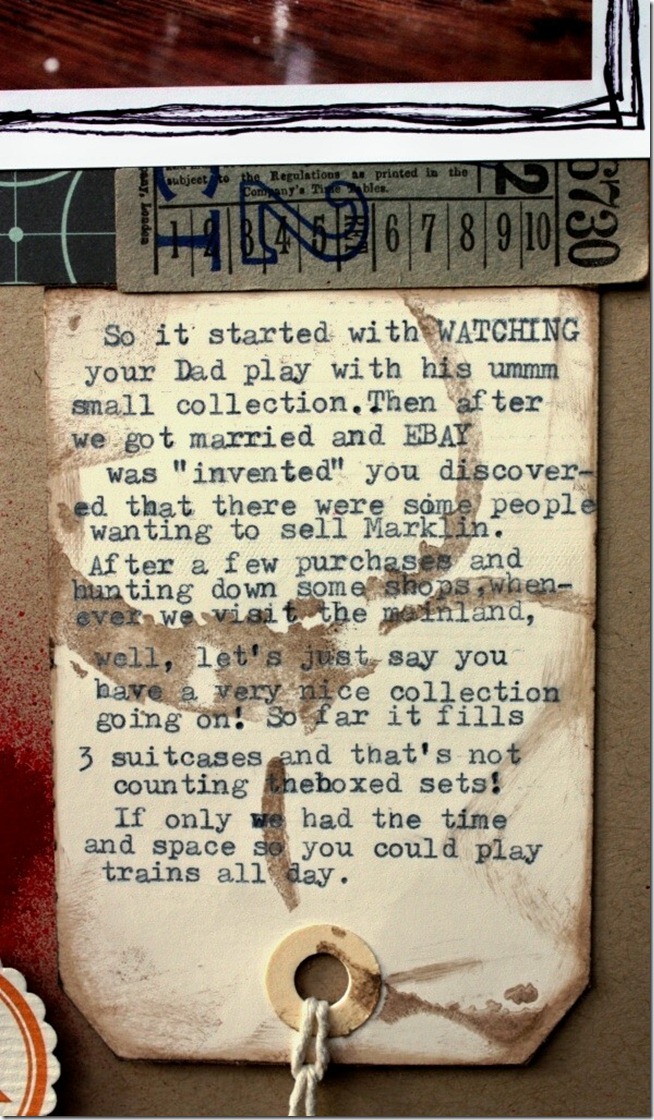 subject to the Regulations as printed in the
Company's Time Tables.
London
2
6730
1 2 3 4 5 6 7 8 9 10
So it started with WATCHING
your Dad play with his ummm
small collection.Then after
we got married and EBAY
was "invented" you discover-
ed that there were some people
wanting to sell Marklin.
After a few purchases and
hunting down some shops,when-
ever we visit the mainland,
well, let's just say you
have a very nice collection
going on! So far it fills
3 suitcases and that's not
counting theboxed sets!
If only we had the time
and space so you could play
trains all day.